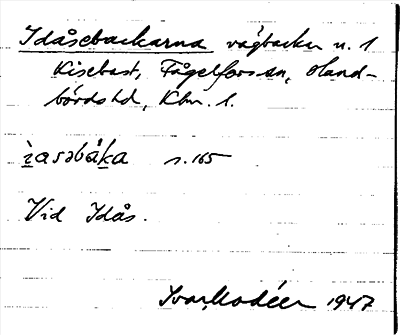 Idåsebackarna vägbackar n. 1
Kisebast, Fågelfors sn, Hand-
börds hd, Klm. l.
i̠asəbáka s. 165
Vid Idås.
Ivar Modéer 1947